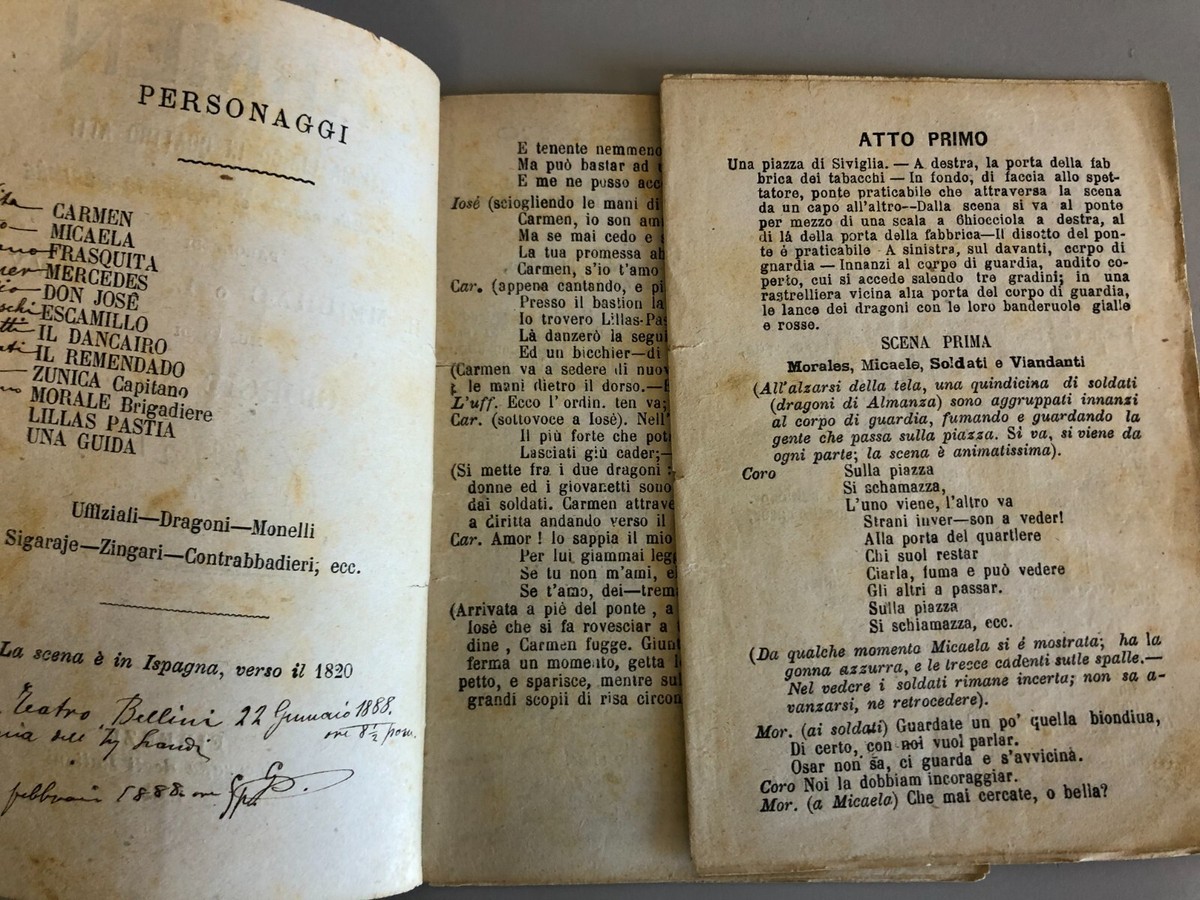 PERSONAGGI
CARMEN
MICAELA
FRASQUITA
MERCEDES
DON JOSÉ
ESCAMILLO
IL DANCAIRO
IL REMENDADO
ZUNICA Capitano
MORALE Brigadiere
LILLAS PASTIA
UNA GUIDA
Uffiziali—Dragoni—Monelli
Sigaraje—Zingari—Contrabbadieri, ecc.
La scena è in Ispagna, verso il 1820
Teatro Bellini 22 Gennaio 1888.
ore 8 ½ pom.
febbraio 1888 ore
E tenente nemmeno
Ma può bastar ad
E me ne posso acc
Iosé (sciogliendo le mani di
Carmen, io son am
Ma se mai cedo e
La tua promessa ab
Carmen, s'io t'amo
Car. (appena cantando, e pi
Presso il bastion la
Io trovero Lillas-Pa
Là danzerò la segui
Ed un bicchier—di
(Carmen va a sedere di nuov
le mani dietro il dorso.—
L'uff. Ecco l'ordin. ten va;
Car. (sottovoce a Iosé). Nell'
Il più forte che pot
Lasciati giù cader;—
(Si mette fra i due dragoni
donne ed i giovanetti sono
dai soldati. Carmen attrave
a diritta andando verso il
Car. Amor! Io sappia il mio
Per lui giammai leg
Se tu non m'ami, e
Se t'amo, dei—trem
(Arrivata a piè del ponte, a
Iosé che si fa rovesciar a
dine, Carmen fugge. Giunt
ferma un momento, getta l
petto, e sparisce, mentre su
grandi scopii di risa circon
ATTO PRIMO
Una piazza di Siviglia. — A destra, la porta della fab
brica dei tabacchi — In fondo, di faccia allo spet-
tatore, ponte praticabile che attraversa la scena
da un capo all'altro--Dalla scena si va al ponte
per mezzo di una scala a Ghiocciola a destra, al
di lá della porta della fabbrica—Il disotto del pon-
te è praticabile A sinistra, sul davanti, corpo di
gnardia — Innanzi al corpo di guardia, andito co-
perto, cui si accede salendo tre gradini; in una
rastrelliera vicina alla porta del corpo di guardia,
le lance dei dragoni con le loro banderuole gialle
e rosse.
SCENA PRIMA
Morales, Micaele, Soldati e Viandanti
(All'alzarsi della tela, una quindicina di soldati
(dragoni di Almanza) sono aggruppati innanzi
al corpo di guardia, fumando e guardando la
gente che passa sulla piazza. Si va, si viene da
ogni parte; la scena è animatissima).
Coro Sulla piazza
Si schamazza,
L'uno viene, l'altro va
Strani inver—son a veder!
Alla porta del quartiere
Chi suol restar
Ciarla, fuma e può vedere
Gli altri a passar.
Sulla piazza
Si schiamazza, ecc.
(Da qualche momento Micaela si é mostrata; ha la
gonna azzurra, e le trecce cadenti sulle spalle.—
Nel vedere i soldati rimane incerta; non sa a-
vanzarsi, nè retrocedere).
Mor. (ai soldati) Guardate un po' quella biondiua,
Di certo, con noi vuol parlar.
Osar non sa, ci guarda e s'avvicinà.
Coro Noi la dobbiam incoraggiar.
Mor. (a Micaela) Che mai cercate, o bella?